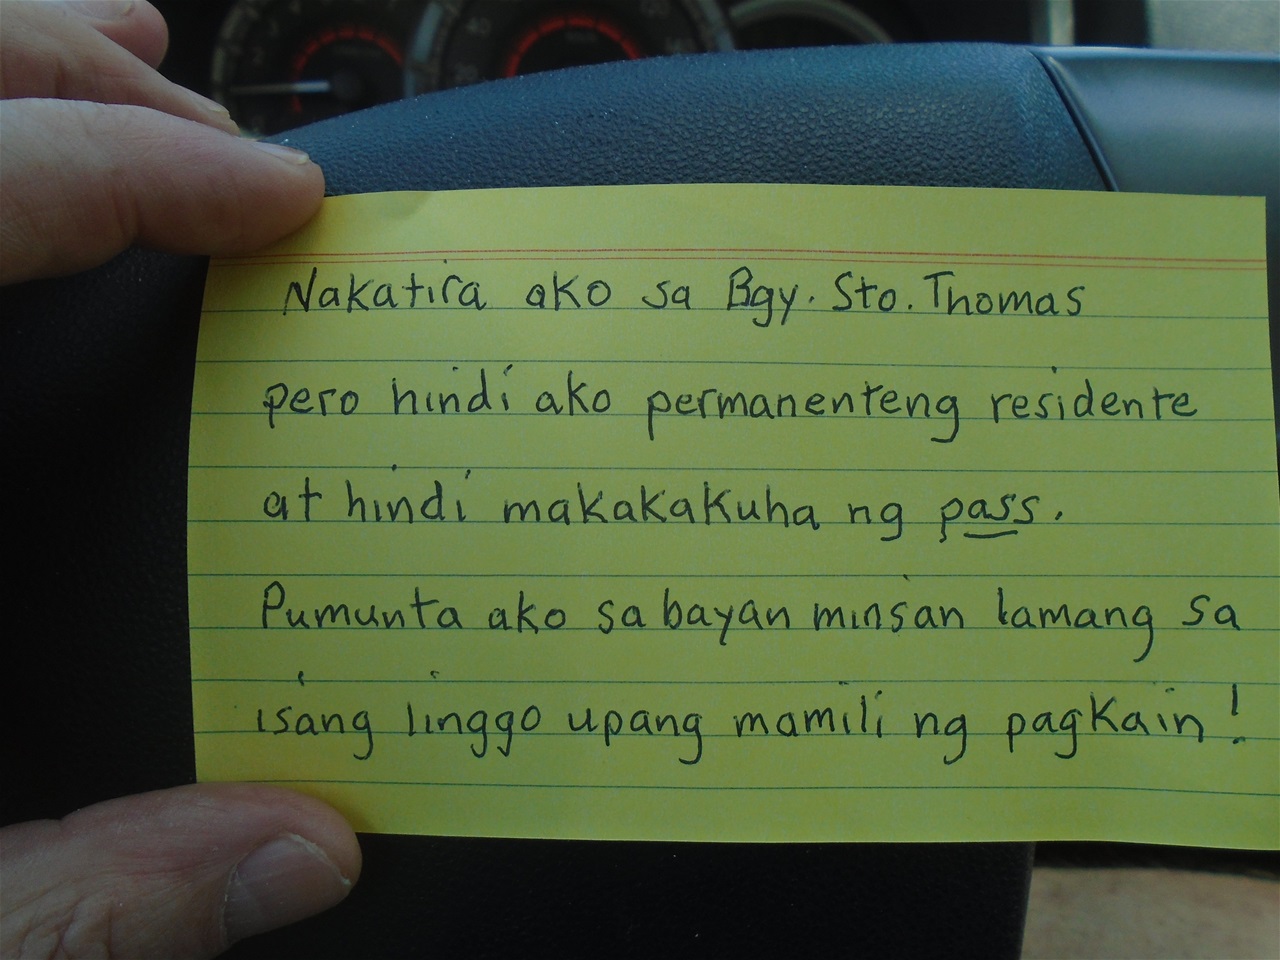 Nakatira ako sa Bgy. Sto. Thomas
pero hindi ako permanenteng residente
at hindi makakakuha ng pass.
Pumunta ako sa bayan minsan lamang sa
isang linggo upang mamili ng pagkain!